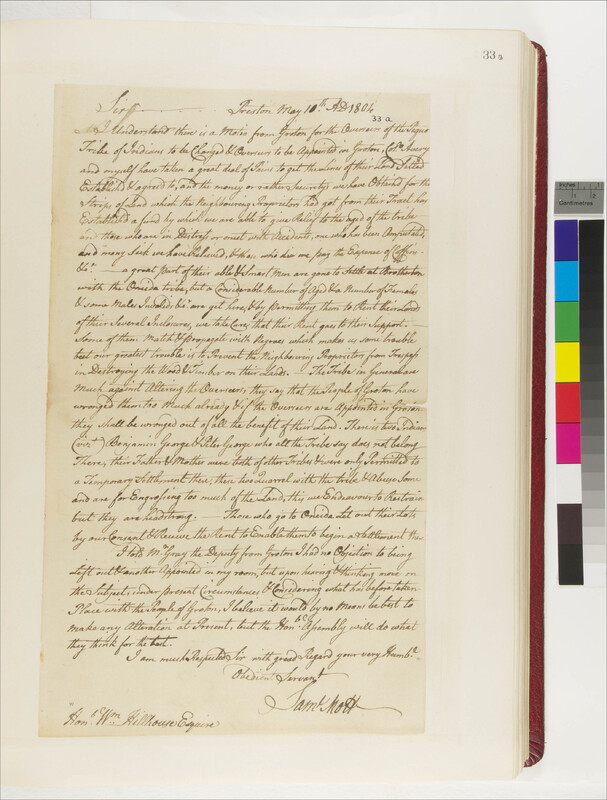 33 a
Sir Preston May 10th AD 1804
33 a
I Understand there is a Motion from Groton for the Overseers of the Pequot
Tribe of Indians to be Changed & Overseers to be Appointed in Groton, Colo. Avery
and myself have taken a great deal of Pains to get the Lines of their Land Settled
Established & agreed to, and the money or rather Securitys we have Obtained for the
Strips of Land which the Neighbouring Proprietors had got from their Tract has
Established a fund by which we are able to give Relief to the aged of the tribe
and those who are in Distress or meet with Accidents, one who has been Amputated,
and many Sick we have Relieved, & those who die we pay the Expence of Coffins
&c. — a great part of their able & Smart Men are gone to Settle at Brothertown
with the Oneida tribe, but a Considerable Number of Aged & a Number of Females
& some Males Invalids &c. are yet here, & by permitting them to Rent their Lands
of their Several Inclosures, we take Care that their Rent goes to their Support. —
Some of them Match & Propagate with Negroes which makes us some trouble
but our greatest trouble is to Prevent the Neighbouring Proprietors from Trespass
in Destroying the Wood & Timber on their Lands. — The Tribe in General are
Much against Altering the Overseers, they say that the People of Groton have
wronged them too much already & if the Overseers are Appointed in Groton
they shall be wronged out of all the benefit of their Land. There is two Indians
(vizt) Benjamin George & Peter George who all the Tribe say does not belong
There, their Father & Mother were both of other Tribes & were only Permitted to
a Temporary Settlement there, these two Quarrel with the tribe & Abuse Some
and are for Engrossing too much of the Land, this we Endeavour to Restrain
but they are headstrong. — Those who go to Oneida Let out their Lots
by our Consent & Receive the Rent to Enable them to begin a Settlement there
I told Mr. Gray the Deputy from Groton I had no Objection to being
Left out & another Appointed in my room, but upon hearing & thinking more on
the Subject, under present Circumstances & Considering what has before taken
Place with the People of Groton, I believe it would by no Means be best to
make any Alteration at Present, but the Honbl. Assembly will do what
they think for the best.
I am much Respected Sir with great Regard your very Humble
Obedient Servant
Saml Mott
Honl. Wm Hillhouse Esquire
inches
1
2
Centimetres